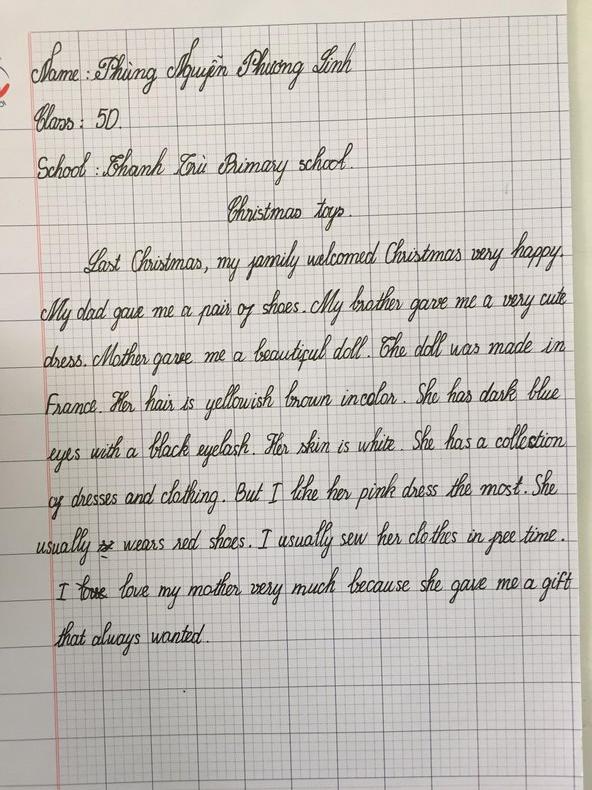 Name : Phùng Nguyễn Phương Linh
Class : 5D.
School : Thanh Trù Primary school.
Christmas toys.
Last Christmas, my family welcomed Christmas very happy.
My dad gave me a pair of shoes. My brother gave me a very cute
dress. Mother gave me a beautiful doll. The doll was made in
France. Her hair is yellowish brown in color. She has dark blue
eyes with a black eyelash. Her skin is white. She has a collection
of dresses and clothing. But I like her pink dress the most. She
usually wears red shoes. I usually sew her clothes in free time.
I love my mother very much because she gave me a gift
that always wanted.